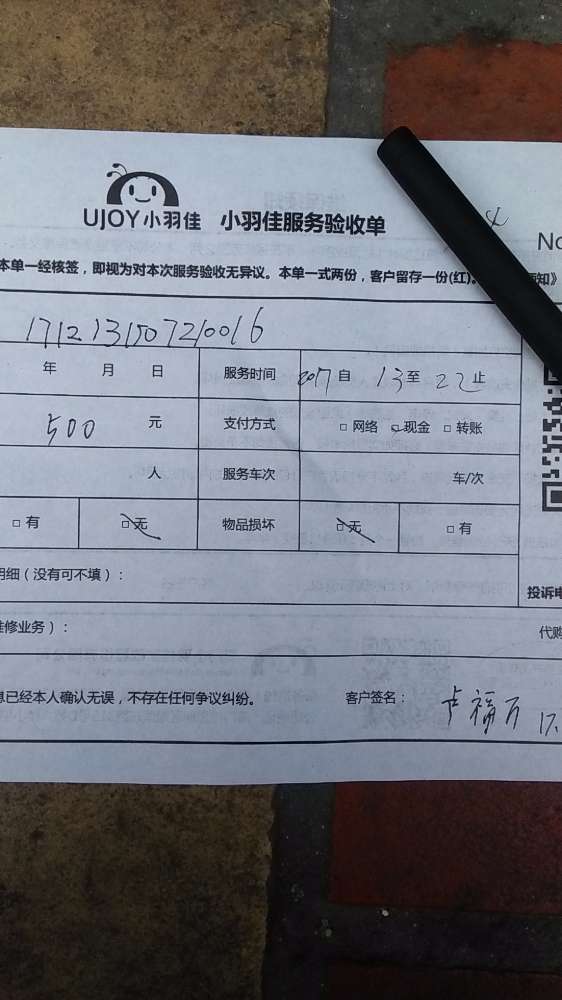 UJOY小羽佳 小羽佳服务验收单
No
本单一经核签，即视为对本次服务验收无异议。本单一式两份，客户留存一份(红)。 知》
17121315072/0016
年 月 日 服务时间 2017 自 13 至 22 止
500 元 支付方式 □ 网络 □ 现金 □ 转账
人 服务车次 车/次
□ 有 □ 无 物品损坏 □ 无 □ 有
明细（没有可不填）：
投诉电
维修业务）： 代购
息已经本人确认无误，不存在任何争议纠纷。 客户签名： 卢福万 17.